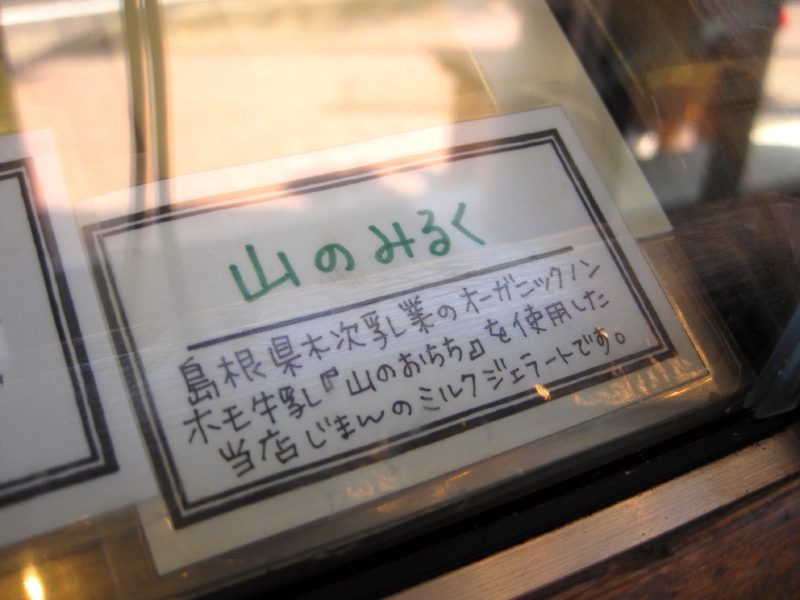 山のみるく
島根県木次乳業のオーガニックノン
ホモ牛乳『山のおちち』を使用した
当店じまんのミルクジェラートです。